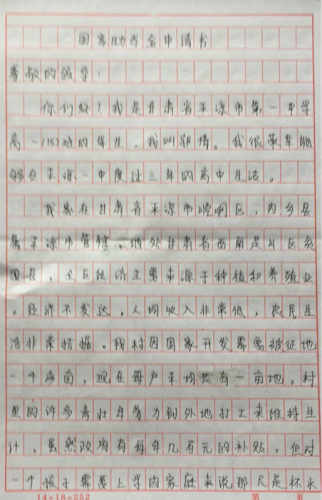 国家助学金申请书
尊敬的领导：
你们好！我是甘肃省平凉市第一中学
高一(15)班的学生，我叫郭倩。我很荣幸能
够在平凉一中度过三年的高中生活。
我家在甘肃省平凉市崆峒区，
属平凉市管辖，地处甘肃省
，经济来源主要来源于种植和养殖业
。经济不发达，人均收入非常低，农民生
活非常拮据。我村因国家开发需要被征地
一千多亩，现在每户平均只有一亩地。村
里的许多青壮年劳力到外地打工来维持生
计，虽然政府有每年几百元的补贴，但对
一个孩子需要上学的家庭来说那只是杯水
14×18=252
第 页